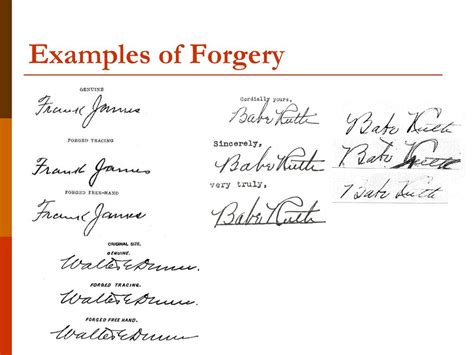 Examples of Forgery
GENUINE
Frank James
FORGED TRACING
Frank James
FORGED FREE-HAND
Frank James
ORIGINAL SIZE.
GENUINE.
Walter E Dunn.
FORGED TRACING.
Walter E Dunn.
FORGED FREE HAND.
Walter E Dunn.
Cordially yours,
Babe Ruth
Sincerely,
Babe Ruth
very truly,
Babe Ruth
Babe Ruth
Babe Ruth
Babe Ruth